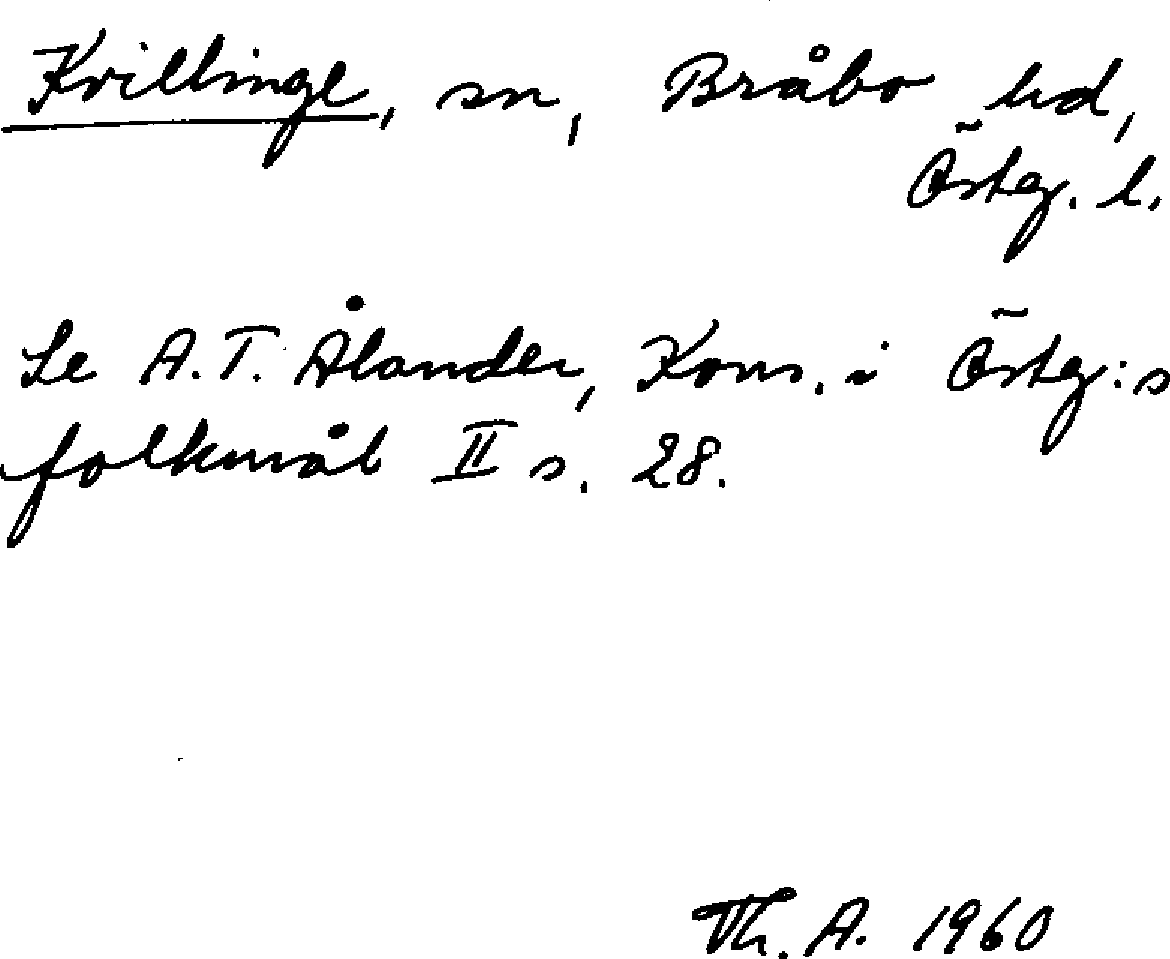 Kvillinge, sn, Bråbo hd,
Östg. l.
Se A.T. Ålander, Kons. i Östg:s
folkmål II s. 28.
Th. A. 1960